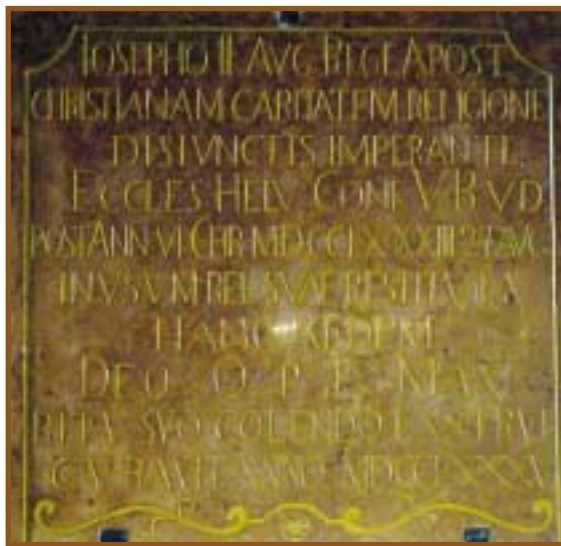 IOSEPHO II AVG REGE APOST
CHRISTIANAM CARITATEM RELIGIONE
DISIVNCTIS IMPERANTE
ECCLES HELV CONF V R VD
POST ANN VI CHR MDCCLXXXIII
IN VSVM REL SVAE RESTITVTA
HANC AEDEM
DEO O P T MAX
RITV SVO COLENDO EXSTRVI
CVRAVIT ANNO MDCCLXXXV